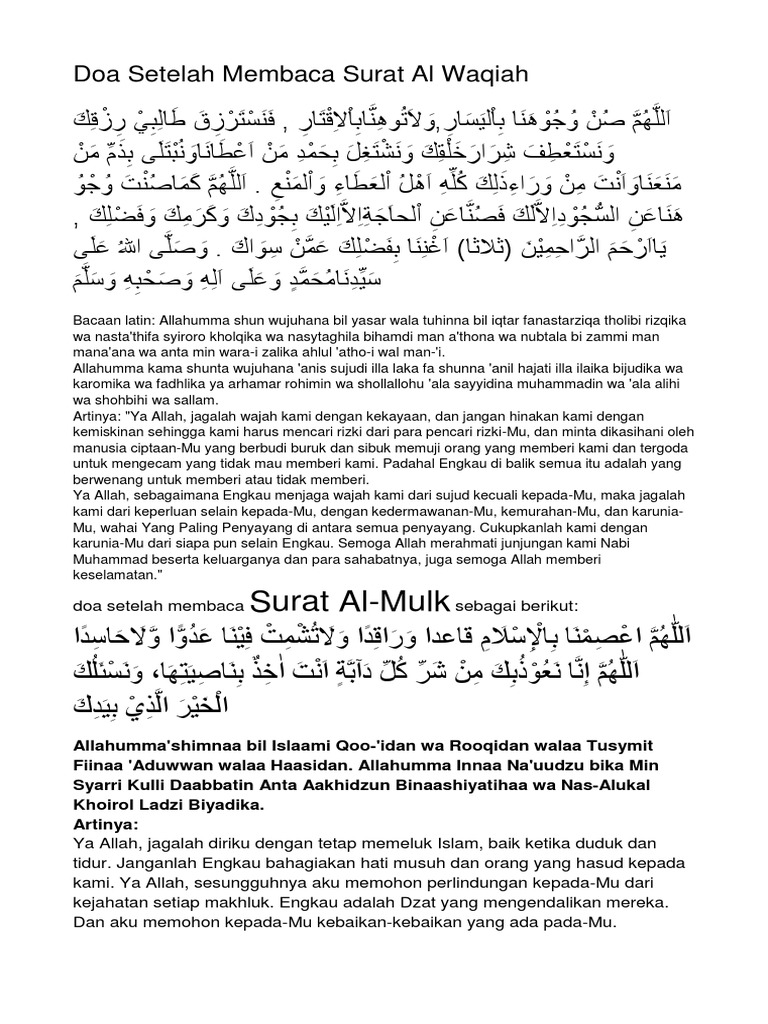 Doa Setelah Membaca Surat Al Waqiah
اَللّٰهُمَّ صُنْ وُجُوْهَنَا بِاْليَسَارِ,وَلاَتُوهِنَّابِاْلاِقْتَارِ , فَنَسْتَرْزِقَ طَالِبِيْ رِزْقِكَ
وَنَسْتَعْطِفَ شِرَارَخَلْقِكَ وَنَشْتَغِلَ بِحَمْدِ مَنْ اَعْطَانَاوَنُبْتَلَى بِذَمِّ مَنْ
مَنَعَنَاوَاَنْتَ مِنْ وَرَاءِذَلِكَ كُلِّهِ اَهْلُ اْلعَطَاءِ وَاْلمَنْعِ . اَللّٰهُمَّ كَمَاصُنْتَ وُجُوْ
هَنَاعَنِ السُّجُوْدِاِلاَّلَكَ فَصُنَّاعَنِ اْلحَاجَةِاِلاَّاِلَيْكَ بِجُوْدِكَ وَكَرَمِكَ وَفَضْلِكَ ,
يَااَرْحَمَ الرَّاحِمِيْنَ (ثلاثا) اَغْنِنَا بِفَضْلِكَ عَمَّنْ سِوَاكَ . وَصَلَّى اللهُ عَلَى
سَيِّدِنَامُحَمَّدٍ وَعَلَى اَلِهِ وَصَحْبِهِ وَسَلَّمَ
Bacaan latin: Allahumma shun wujuhana bil yasar wala tuhinna bil iqtar fanastarziqa tholibi rizqika
wa nasta'thifa syiroro kholqika wa nasytaghila bihamdi man a'thona wa nubtala bi zammi man
mana'ana wa anta min wara-i zalika ahlul 'atho-i wal man-'i.
Allahumma kama shunta wujuhana 'anis sujudi illa laka fa shunna 'anil hajati illa ilaika bijudika wa
karomika wa fadhlika ya arhamar rohimin wa shollallohu 'ala sayyidina muhammadin wa 'ala alihi
wa shohbihi wa sallam.
Artinya: "Ya Allah, jagalah wajah kami dengan kekayaan, dan jangan hinakan kami dengan
kemiskinan sehingga kami harus mencari rizki dari para pencari rizki-Mu, dan minta dikasihani oleh
manusia ciptaan-Mu yang berbudi buruk dan sibuk memuji orang yang memberi kami dan tergoda
untuk mengecam yang tidak mau memberi kami. Padahal Engkau di balik semua itu adalah yang
berwenang untuk memberi atau tidak memberi.
Ya Allah, sebagaimana Engkau menjaga wajah kami dari sujud kecuali kepada-Mu, maka jagalah
kami dari keperluan selain kepada-Mu, dengan kedermawanan-Mu, kemurahan-Mu, dan karunia-
Mu, wahai Yang Paling Penyayang di antara semua penyayang. Cukupkanlah kami dengan
karunia-Mu dari siapa pun selain Engkau. Semoga Allah merahmati junjungan kami Nabi
Muhammad beserta keluarganya dan para sahabatnya, juga semoga Allah memberi
keselamatan."
doa setelah membaca Surat Al-Mulk sebagai berikut:
اَللّٰهُمَّ اعْصِمْنَا بِالْإِسْلَامِ قاعدا وَرَاقِدًا وَلَاتُشْمِتْ فِيْنَا عَدُوًّا وَّلَاحَاسِدًا
اَللّٰهُمَّ إِنَّا نَعُوْذُبِكَ مِنْ شَرِّ كُلِّ دَآبَّةٍ اَنْتَ اٰخِذٌ بِنَاصِيَتِهَا، وَنَسْئَلُكَ
الْخَيْرَ الَّذِيْ بِيَدِكَ
Allahumma'shimnaa bil Islaami Qoo-'idan wa Rooqidan walaa Tusymit
Fiinaa 'Aduwwan walaa Haasidan. Allahumma Innaa Na'uudzu bika Min
Syarri Kulli Daabbatin Anta Aakhidzun Binaashiyatihaa wa Nas-Alukal
Khoirol Ladzi Biyadika.
Artinya:
Ya Allah, jagalah diriku dengan tetap memeluk Islam, baik ketika duduk dan
tidur. Janganlah Engkau bahagiakan hati musuh dan orang yang hasud kepada
kami. Ya Allah, sesungguhnya aku memohon perlindungan kepada-Mu dari
kejahatan setiap makhluk. Engkau adalah Dzat yang mengendalikan mereka.
Dan aku memohon kepada-Mu kebaikan-kebaikan yang ada pada-Mu.